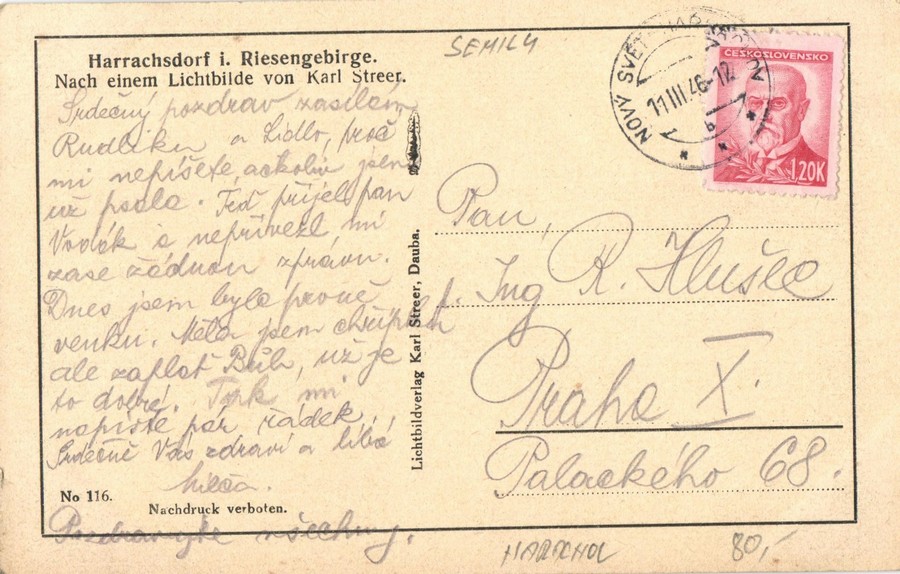 SEMILY
Harrachsdorf i. Riesengebirge.
Nach einem Lichtbilde von Karl Streer.
Srdečný pozdrav zasílám
Rudlíku a Lidlo, proč
mi nepíšete, ačkoliv jsem
už psala. Teď přijel pan
Vodák a nepřivezl mi
zase žádnou zprávu.
Dnes jsem byla prvně
venku. Měla jsem chřipku
ale zaplať Bůh, už je
to dobré. Tak mi
napište pár řádek.
Srdečně Vás zdraví a líbá
No 116.
Nachdruck verboten.
Pozdravujte všechny.
Lichtbildverlag Karl Streer, Dauba.
NOVÝ SVĚT
11.III.46-12
b
ČESKOSLOVENSKO
1.20K
Pan
Ing R. Hlušec
Praha X.
Palackého 68.
HARACHOV
80,-